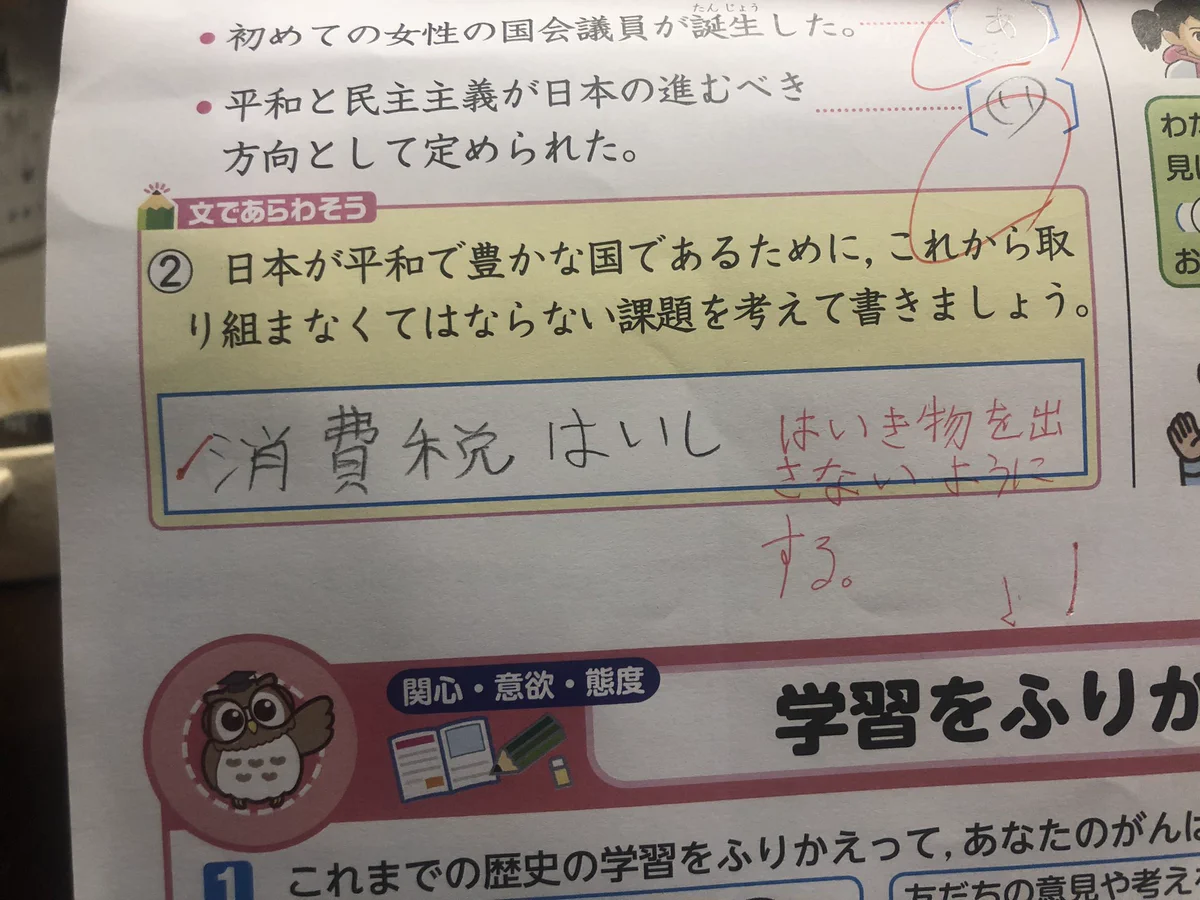 初めての女性の国会議員が誕生した。
たんじょう
あ
平和と民主主義が日本の進むべき
方向として定められた。
い
文であらわそう
② 日本が平和で豊かな国であるために,これから取
り組まなくてはならない課題を考えて書きましょう。
消費税はいし
はいき物を出
さないように
する。
わた
見
お
関心・意欲・態度
学習をふりか
1 これまでの歴史の学習をふりかえって,あなたのがんば
友だちの意見や考え